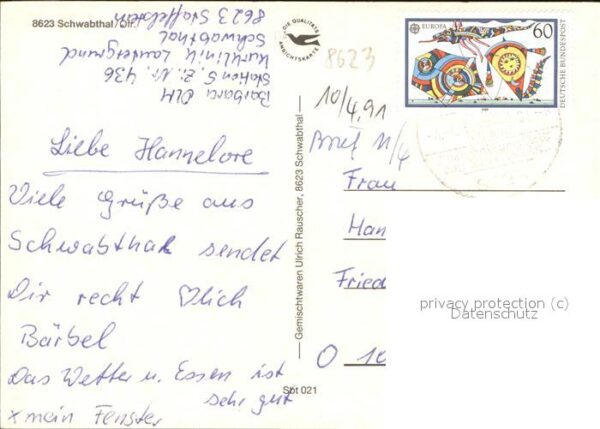 8623 Schwabthal/Ofr.
Barbara
Station 5, Z. Nr. 436
Kurklinik Lautergrund
Schwabthal
8623 Staffelstein
Liebe Hannelore
Viele Grüße aus
Schwabthal sendet
Dir recht ♡lich
Bärbel
Das Wetter u. Essen ist
sehr gut
x mein Fenster
DIE QUALITÄTS
ANSICHTSKARTE
8623
Gemischtwaren Ulrich Rauscher, 8623 Schwabthal
Sbt 021
EUROPA
60
DEUTSCHE BUNDESPOST
1989
10/4.91
Brief 11/4
Frau
Han
Fried
O 10
privacy protection (c)
Datenschutz